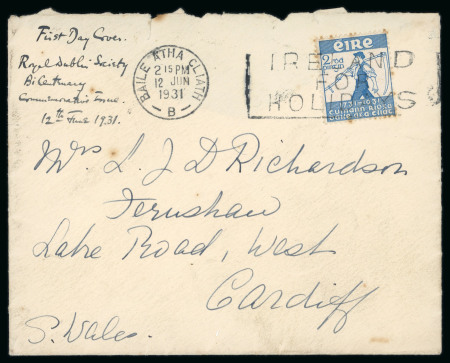 First Day Cover.
Royal Dublin Society
Bi Centenary
Commemorative Issue.
12th June 1931.
BAILE ÁTHA CLIATH
2 15 PM
12 JUN
1931
B
IRELAND
FO
HOLIDAYS
éire
2
1731-1931
Mrs L. J D Richardson
Fernshaw
Lake Road, West
Cardiff
S. Wales.